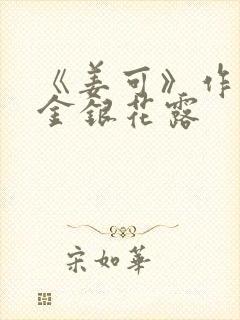 《姜可》作
金银花露
宋如华